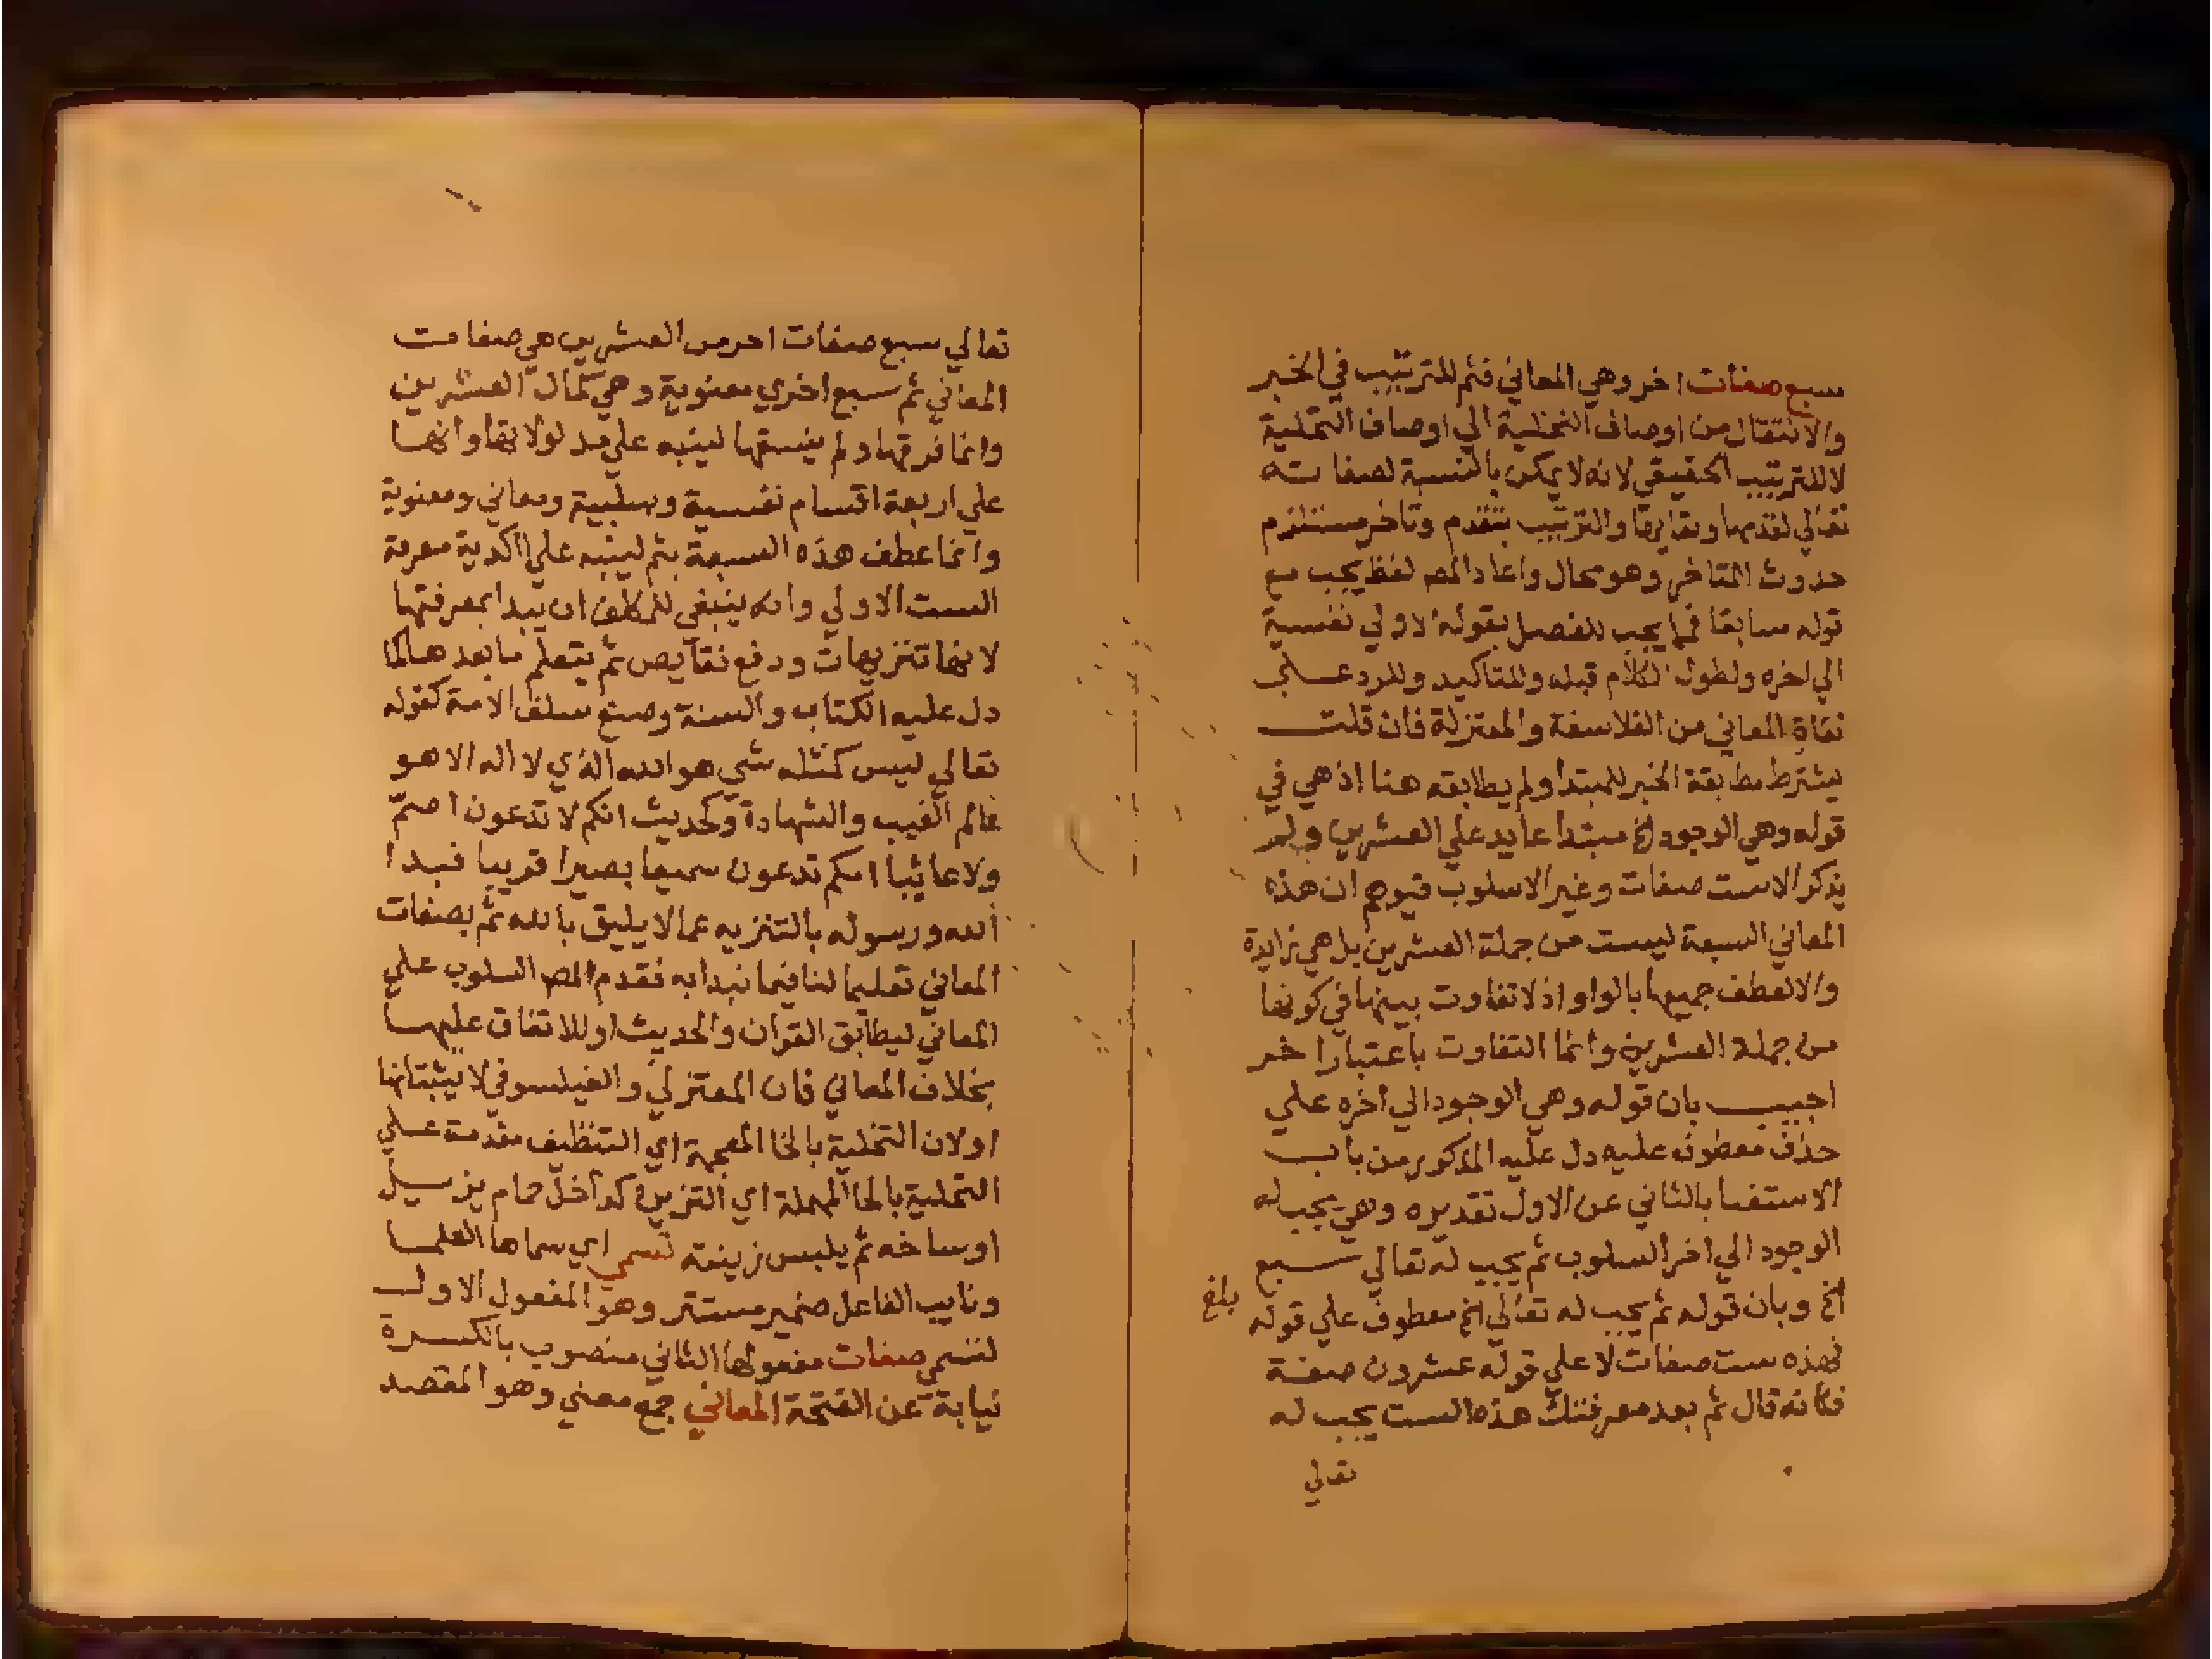 سبع صفات اخر وهي المعاني فثم للترتيب في الخبر
والانتقال من اوصاف التخلية الي اوصاف التحلية
لا للترتيب الحقيقي لانه لا يمكن بالنسبة لصفاته
تعالي لقدمها وبقايها والترتيب بتقدم وتاخر مستلزم
حدوث المتاخر وهو محال واعاد المص لفظ يجب مع
قوله سابقا فيما يجب للفصل بقوله الاولي نفسية
الي اخره ولطول الكلام قبله وللتاكيد وللرد علي
نفاة المعاني من الفلاسفة والمعتزلة فان قلت
يشترط مطابقة الخبر للمبتدا ولم يطابقه هنا اذ هي في
قوله وهي الوجود الخ مبتدا عايد علي العشرين ولم
يذكر الا ست صفات وغير الاسلوب فيوهم ان هذه
المعاني السبعة ليست من جملة العشرين بل هي زايدة
والا لعطف جميعها بالواو اذ لا تفاوت بينها في كونها
من جملة العشرين وانما التفاوت باعتبار اخر
اجيب بان قوله وهي الوجود الي اخره علي
حذف معطوف عليه دل عليه المذكور من باب
الاستغنا بالثاني عن الاول تقديره وهي يجب له
الوجود الي اخر السلوب ثم يجب له تعالي سبع
الخ وبان قوله ثم يجب له تعالي الخ معطوف علي قوله
بلغ
فهذه ست صفات لا علي قوله عشرون صفة
فكانه قال ثم بعد معرفتك هذه الست يجب له
تعالي
تعالي سبع صفات اخر من العشرين هي صفات
المعاني ثم سبع اخري معنوية وهي كمال العشرين
وانما فرقها ولم ينسقها لينبه علي مدلولاتها وانها
علي اربعة اقسام نفسية وسلبية ومعاني ومعنوية
وانما عطف هذه السبعة بثم لينبه علي اكدية معرفة
الست الاولي وانه ينبغي للمكلف ان يبدا بمعرفتها
لانها تنزيهات ودفع نقايص ثم يتعلم ما بعدها لما
دل عليه الكتاب والسنة وصنع سلف الامة كقوله
تعالي ليس كمثله شي هو الله الذي لا اله الا هو
عالم الغيب والشهادة وكحديث انكم لا تدعون اصم
ولا غائبا انكم تدعون سميعا بصيرا قريبا فبدا
الله ورسوله بالتنزيه عما لا يليق بالله ثم بصفات
المعاني تعليما لنا فيما نبدا به فقدم المص السلوب علي
المعاني ليطابق القران والحديث او للاتفاق عليها
بخلاف المعاني فان المعتزلي والفيلسوفي لا يثبتانها
اولان التخلية بالخا المعجمة اي التنظيف مقدمة علي
التحلية بالحا المهملة اي التزين كداخل حمام يزيل
اوساخه ثم يلبس زينته تسمي اي سماها العلما
ونايب الفاعل ضمير مستتر وهو المفعول الاول
لتسمي صفات مفعولها الثاني منصوب بالكسرة
نيابة عن الفتحة المعاني جمع معني وهو المقصد